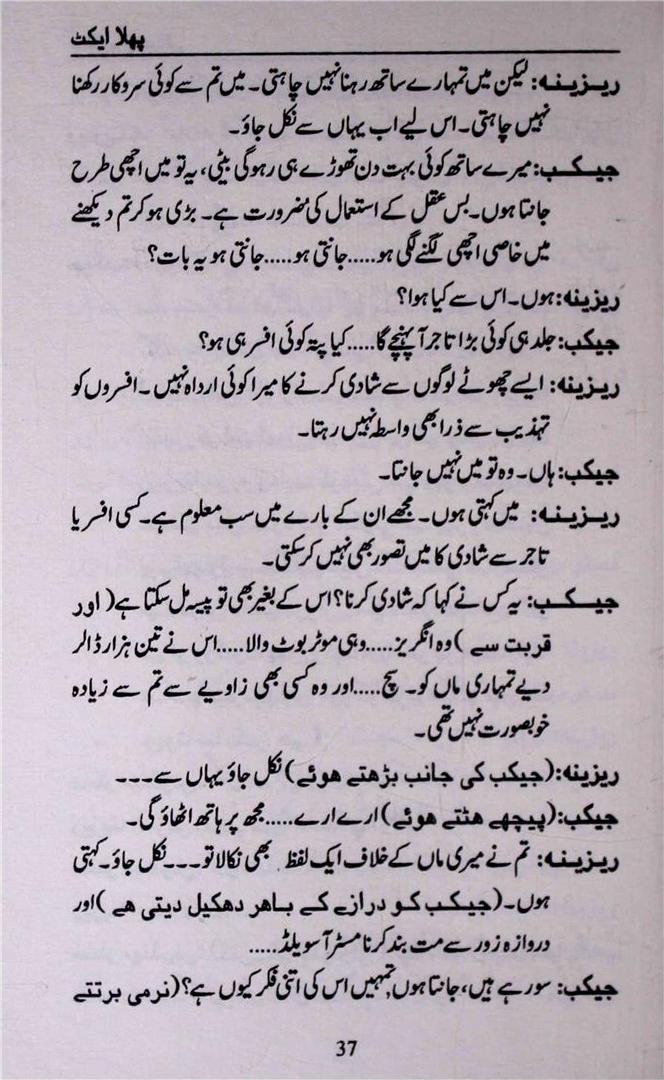 پھلا ایکٹ
ریزینہ: لیکن میں تمہارے ساتھ رہنا نہیں چاہتی۔ میں تم سے کوئی سروکار رکھنا
نہیں چاہتی۔ اس لیے اب یہاں سے نکل جاؤ۔
جیکب: میرے ساتھ کوئی بہت دن تھوڑے ہی رہو گی بیٹی، یہ تو میں اچھی طرح
جانتا ہوں۔ بس عقل کے استعمال کی ضرورت ہے۔ بڑی ہو کر تم دیکھنے
میں خاصی اچھی لگنے لگی ہو.....جانتی ہو.....جانتی ہو یہ بات؟
ریزینہ: ہوں۔ اس سے کیا ہوا؟
جیکب: جلد ہی کوئی بڑا تاجر آ پہنچے گا.....کیا پتہ کوئی افسر ہی ہو؟
ریزینہ: ایسے چھوٹے لوگوں سے شادی کرنے کا میرا کوئی ارداہ نہیں۔ افسروں کو
تہذیب سے ذرا بھی واسطہ نہیں رہتا۔
جیکب: ہاں۔ وہ تو میں نہیں جانتا۔
ریزینہ: میں کہتی ہوں۔ مجھے ان کے بارے میں سب معلوم ہے۔ کسی افسر یا
تاجر سے شادی کا میں تصور بھی نہیں کر سکتی۔
جیکب: یہ کس نے کہا کہ شادی کرنا؟ اس کے بغیر بھی تو پیسہ مل سکتا ہے (اور
قربت سے) وہ انگریز.....وہی موٹر بوٹ والا.....اس نے تین ہزار ڈالر
دیے تمہاری ماں کو۔ سچ.....اور وہ کسی بھی زاویے سے تم سے زیادہ
خوبصورت نہیں تھی۔
ریزینہ: (جیکب کی جانب بڑھتے ھوئے) نکل جاؤ یہاں سے۔۔۔
جیکب: (پیچھے ھٹتے ھوئے) ارے ارے.....مجھ پر ہاتھ اٹھاؤ گی۔
ریزینہ: تم نے میری ماں کے خلاف ایک لفظ بھی نکالا تو۔۔۔نکل جاؤ۔ کہتی
ہوں۔ (جیکب کو درازے کے باھر دھکیل دیتی ھے) اور
دروازہ زور سے مت بند کرنا مسٹر آسویلڈ.....
جیکب: سو رہے ہیں، جانتا ہوں، تمہیں اس کی اتنی فکر کیوں ہے؟ (نرمی برتتے
37